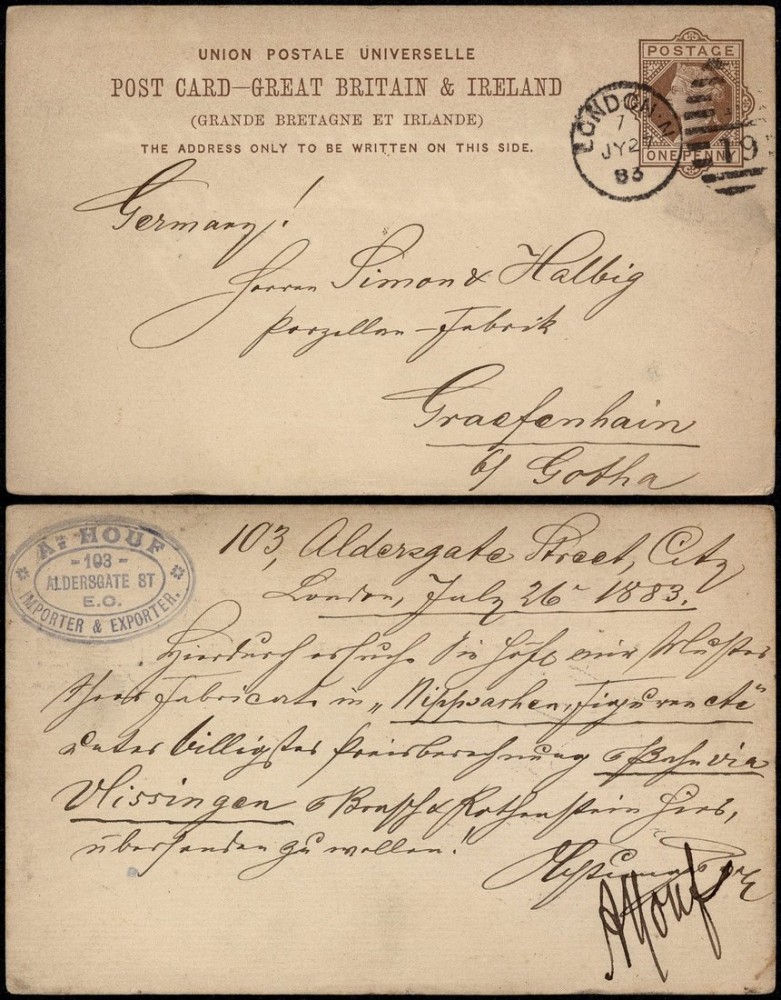 UNION POSTALE UNIVERSELLE
POST CARD—GREAT BRITAIN & IRELAND
(GRANDE BRETAGNE ET IRLANDE)
THE ADDRESS ONLY TO BE WRITTEN ON THIS SIDE.
POSTAGE
ONE PENNY
LONDON·N
7
JY 27
83
19
Germany!
Herren Simon & Halbig
Porzellan-Fabrik
Graefenhain
b/ Gotha
Ad. HOUF
-103-
ALDERSGATE ST
E.C.
IMPORTER & EXPORTER.
103, Aldersgate Street, City
London, July 26 1883.
Hierdurch ersuche Sie höfl. mir Muster
Ihres Fabricats in „Nippsachen, Figuren etc"
unter billigster Preisberechnung p Bahn via
Vlissingen p Brasch & Rothenstein
übersenden zu wollen!
A Houf